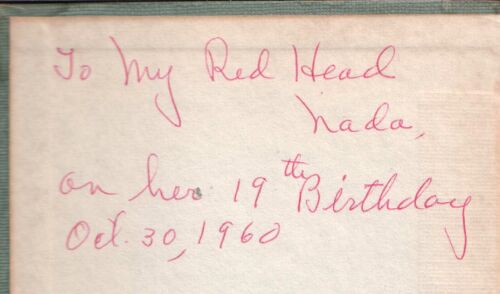 To My Red Head
Nada,
on her 19th Birthday
Oct. 30, 1960